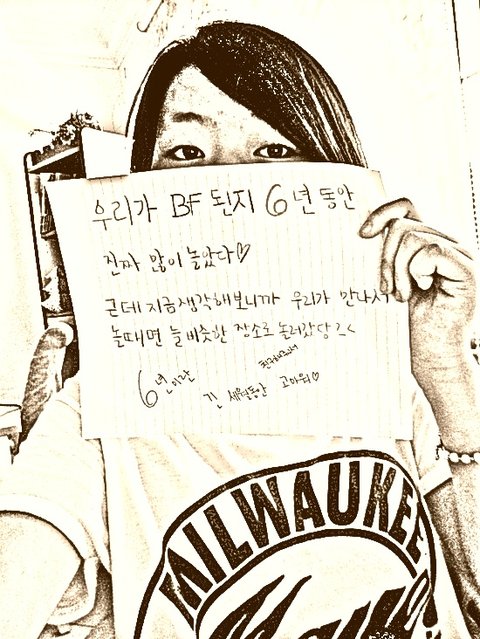 우리가 BF 된지 6년동안
진짜 많이 놀았다♡
근데 지금생각해보니까 우리가 만나서
놀때면 늘 비슷한 장소로 놀러갔당
친구해줘서
6년이란 긴 세월동안 고마워♡
MILWAUKEE